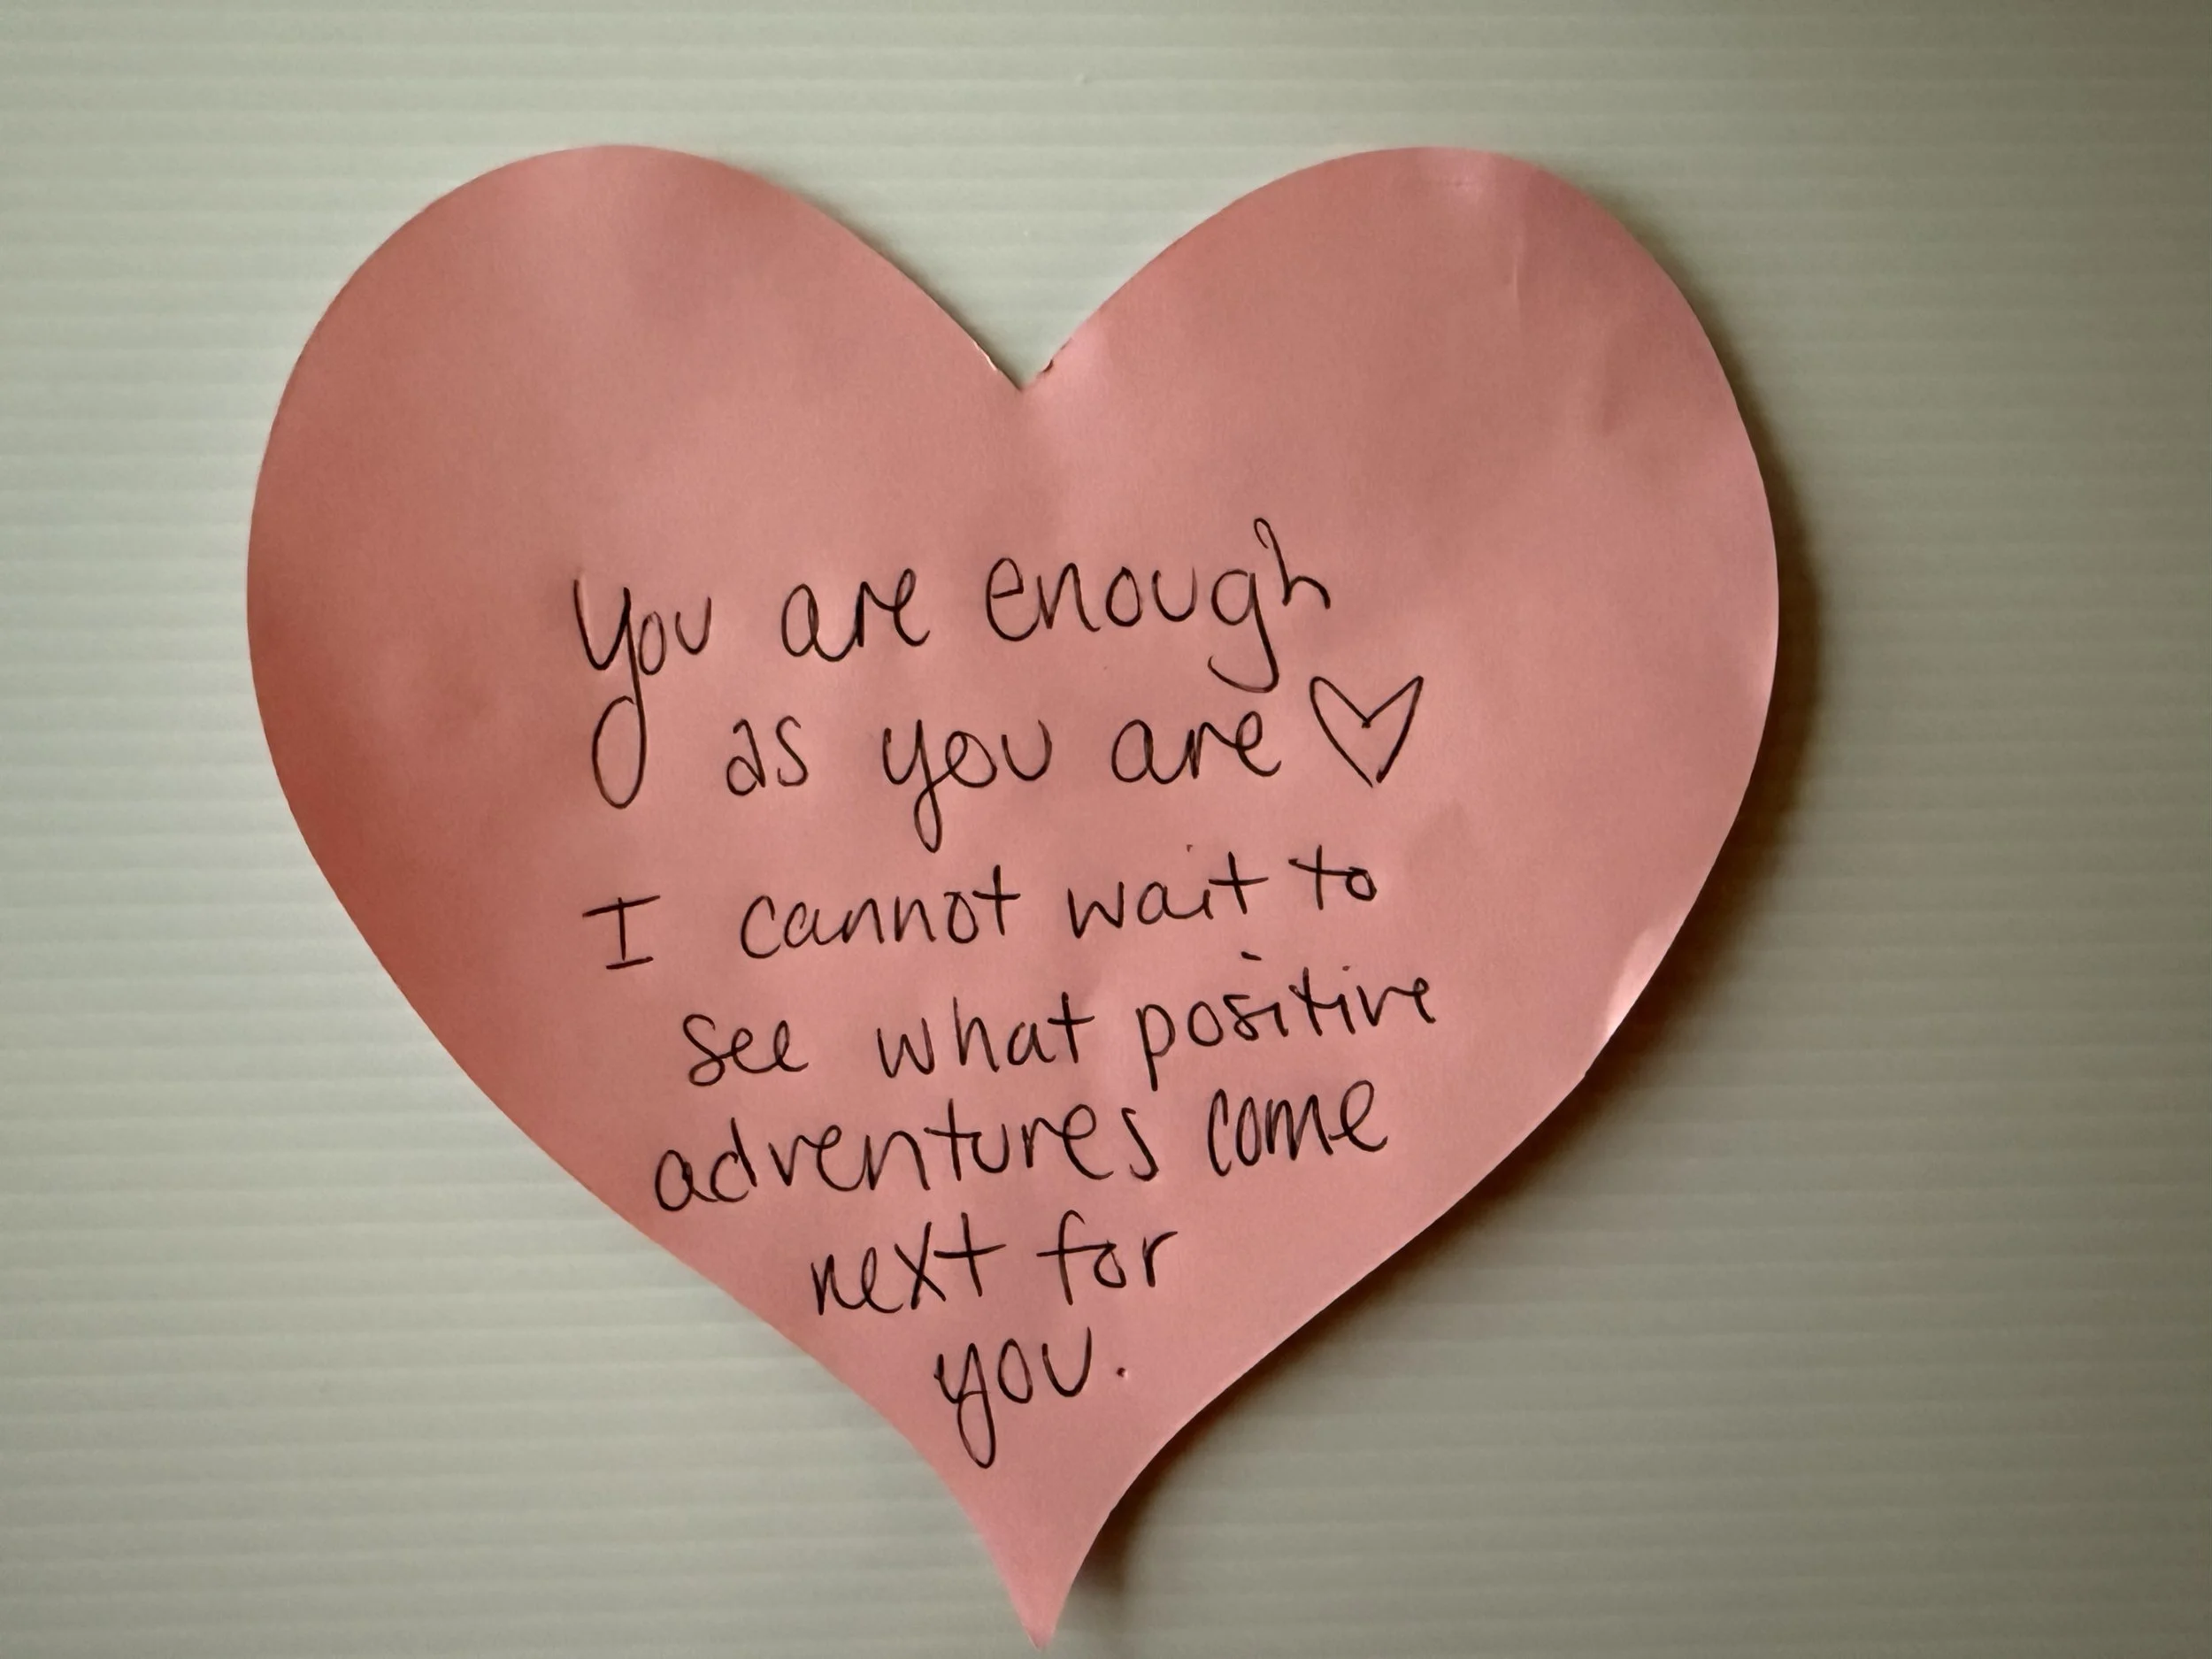 you are enough
as you are ♡
I cannot wait to
see what positive
adventures come
next for
you.